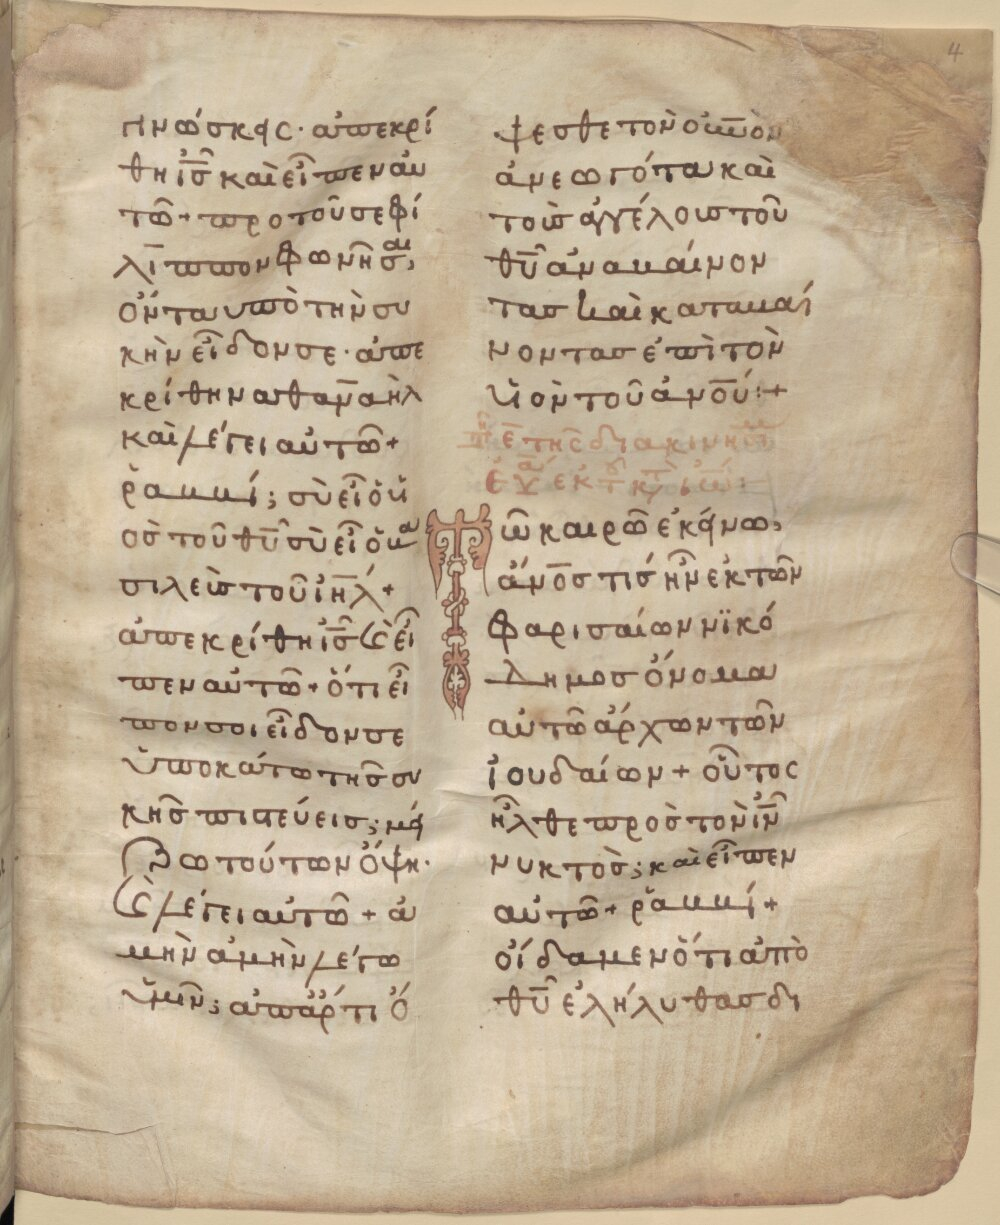 4
γινώσκεις· ἀπεκρί
θη ἰς̅ καὶ εἶπεν αὐ
τῶ + πρὸ τοῦ σε φί
λιππον φωνῆσαι,
ὄντα ὑπὸ τὴν συ
κὴν εἶδόν σε· ἀπε
κρίθη ναθαναὴλ
καὶ λέγει αὐτῶ +
ῥαββί; σὺ εἶ ὁ ὑι
ὸς τοῦ θυ̅ σὺ εἶ ὁ βα
σιλεὺς τοῦ ἰη̅λ +
ἀπεκρίθη ἰς̅ ϗ εἶ
πεν αὐτῶ + ὅτι εἶ
πόν σοι εἶδόν σε
ὑποκάτω τῆς συ
κῆς πιστεύεις; μεί
ζω τούτων ὄψη·
ϗ λέγει αὐτῶ + ἀ
μὴν ἀμὴν λέγω
ὑμῖν; ἀπάρτι ὄ
ψεσθε τὸν οὐν̅ον
ἀνεωγότα καὶ
τοὺς ἀγγέλους τοῦ
θυ̅ ἀναβαίνον
τας καὶ καταβαί
νοντας ἐπὶ τὸν
ὑιὸν τοῦ ἀνο̅υ:+
ε̅ τῆς διακινησίμου
ἐκ τοῦ κατὰ ἰω̅
Τῶ καιρῶ ἐκείνω,
ἄνο̅ς τίς ἦν ἐκ τῶν
φαρισαίων νϊκό
δημος ὄνομα
αὐτῶ ἄρχων τῶν
ἰουδαίων + οὗτος
ἦλθε πρὸς τὸν ἰν̅
νυκτὸς; καὶ εἶπεν
αὐτῶ + ῥαββί +
οἴδαμεν ὅτι ἀπὸ
θυ̅ ἐλήλυθας δι